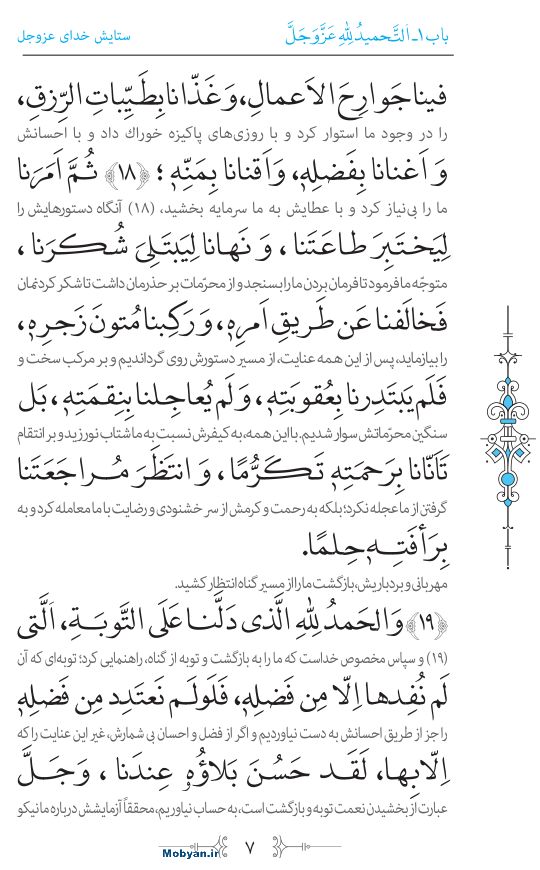 باب ۱ـ اَلتَّحمیدُ لِلّٰهِ عَزَّ وَ جَلَّ
ستایش خدای عزوجل
فینا جَوارِحَ الاَعمالِ، وَ غَذّانا بِطَیِّباتِ الرِّزقِ،
را در وجود ما استوار کرد و با روزی‌های پاکیزه خوراك داد و با احسانش
وَ اَغنانا بِفَضلِهٖ، وَ اَقنانا بِمَنِّهٖ ؛ ﴿۱۸﴾ ثُمَّ اَمَرَنا
ما را بی‌نیاز کرد و با عطایش به ما سرمایه بخشید، (۱۸) آنگاه دستورهایش را
لِیَختَبِرَ طاعَتَنا، وَ نَهانا لِیَبتَلِیَ شُکرَنا،
متوجّه ما فرمود تا فرمان بردن ما را بسنجد و از محرّمات بر حذرمان داشت تا شکر کردنمان
فَخالَفنا عَن طَریقِ اَمرِهٖ، وَ رَکِبنا مُتونَ زَجرِهٖ،
را بیازماید، پس از این همه عنایت، از مسیر دستورش روی گرداندیم و بر مرکب سخت و
فَلَم یَبتَدِرنا بِعُقوبَتِهٖ، وَ لَم یُعاجِلنا بِنِقمَتِهٖ، بَل
سنگین محرّماتش سوار شدیم. با این همه، به کیفرش نسبت به ما شتاب نورزید و بر انتقام
تَاَنّانا بِرَحمَتِهٖ تَکَرُّمًا، وَ انتَظَرَ مُراجَعَتَنا
گرفتن از ما عجله نکرد؛ بلکه به رحمت و کرمش از سر خشنودی و رضایت با ما معامله کرد و به
بِرَأفَتِهٖ حِلمًا.
مهربانی و بردباریش، بازگشت ما را از مسیر گناه انتظار کشید.
﴿۱۹﴾ وَ الحَمدُ لِلّٰهِ الَّذی دَلَّنا عَلَی التَّوبَةِ، اَلَّتی
(۱۹) و سپاس مخصوص خداست که ما را به بازگشت و توبه از گناه، راهنمایی کرد؛ توبه‌ای که آن
لَم نُفِدها اِلّا مِن فَضلِهٖ، فَلَو لَم نَعتَدِد مِن فَضلِهٖ
را جز از طریق احسانش به دست نیاوردیم و اگر از فضل و احسان بی شمارش، غیر این عنایت را که
اِلّا بِها، لَقَد حَسُنَ بَلاؤُهٗ عِندَنا، وَ جَلَّ
عبارت از بخشیدن نعمت توبه و بازگشت است، به حساب نیاوریم، محققاً آزمایشش درباره ما نیکو
۷
Mobyan.ir